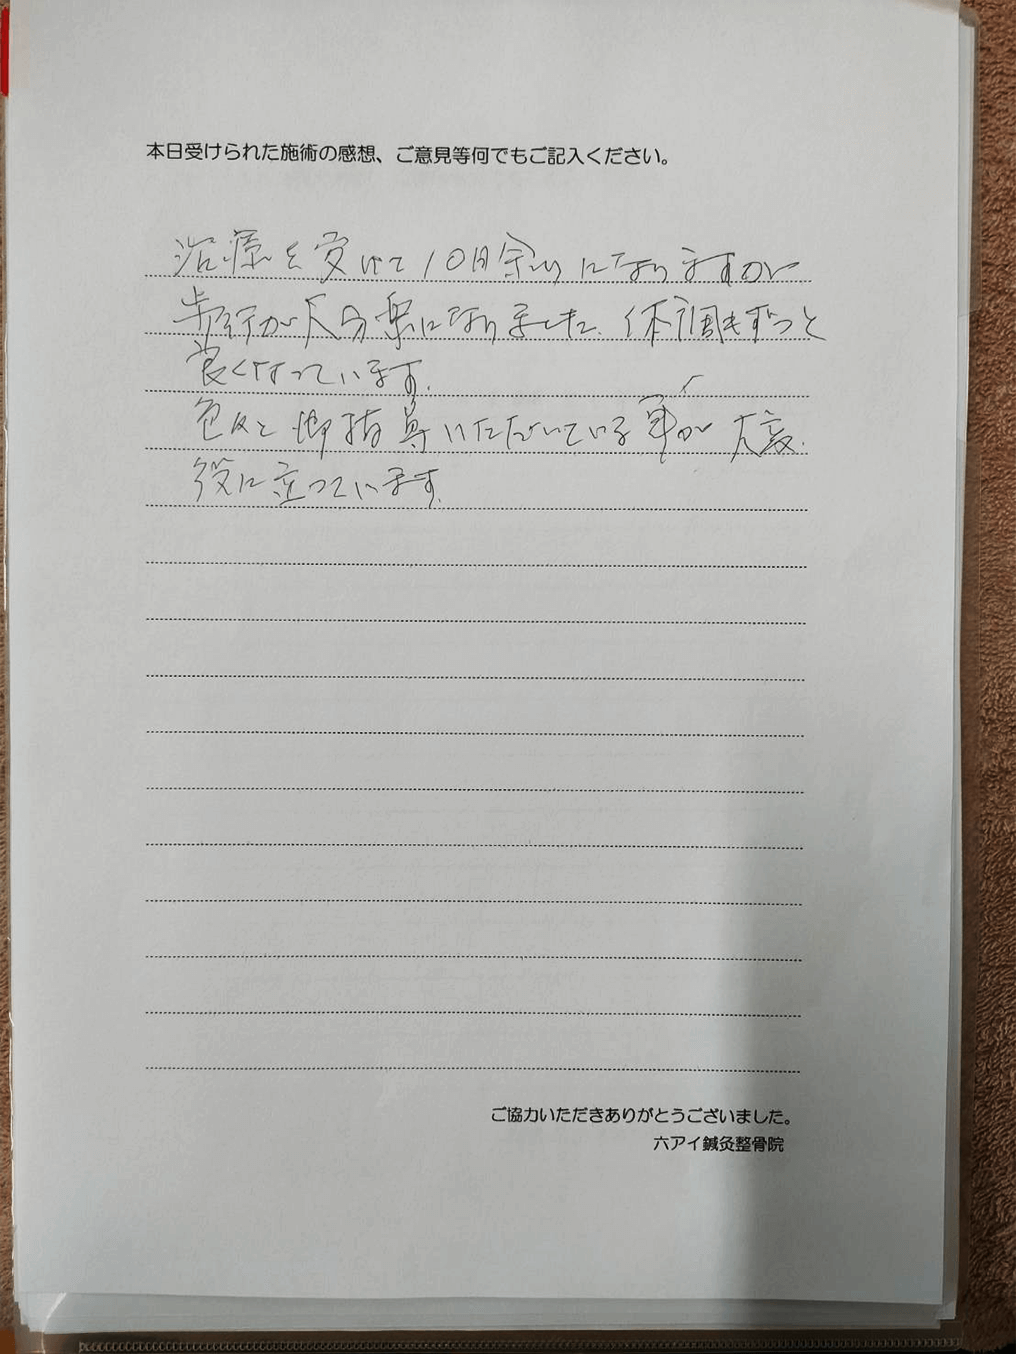 本日受けられた施術の感想、ご意見等何でもご記入ください。
治療を受けて10日余りになりますが
歩行が大分楽になりました、体調もずっと
良くなっています。
色々と御指導いただいている事が大変
役に立っています。
ご協力いただきありがとうございました。
六アイ鍼灸整骨院